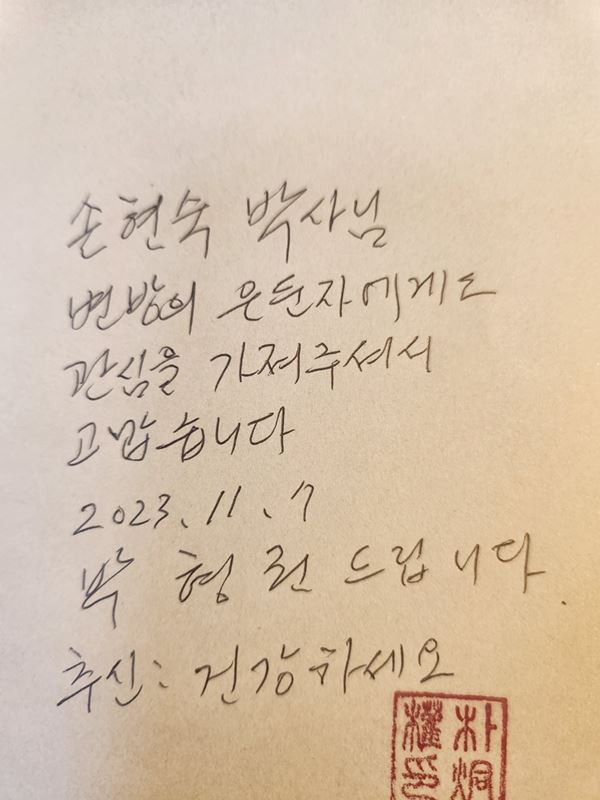 손현숙 박사님
변방의 은둔자에게도
관심을 가져주셔서
고맙습니다
2023. 11. 7
박형권 드립니다.
추신: 건강하세요
朴炯
權印